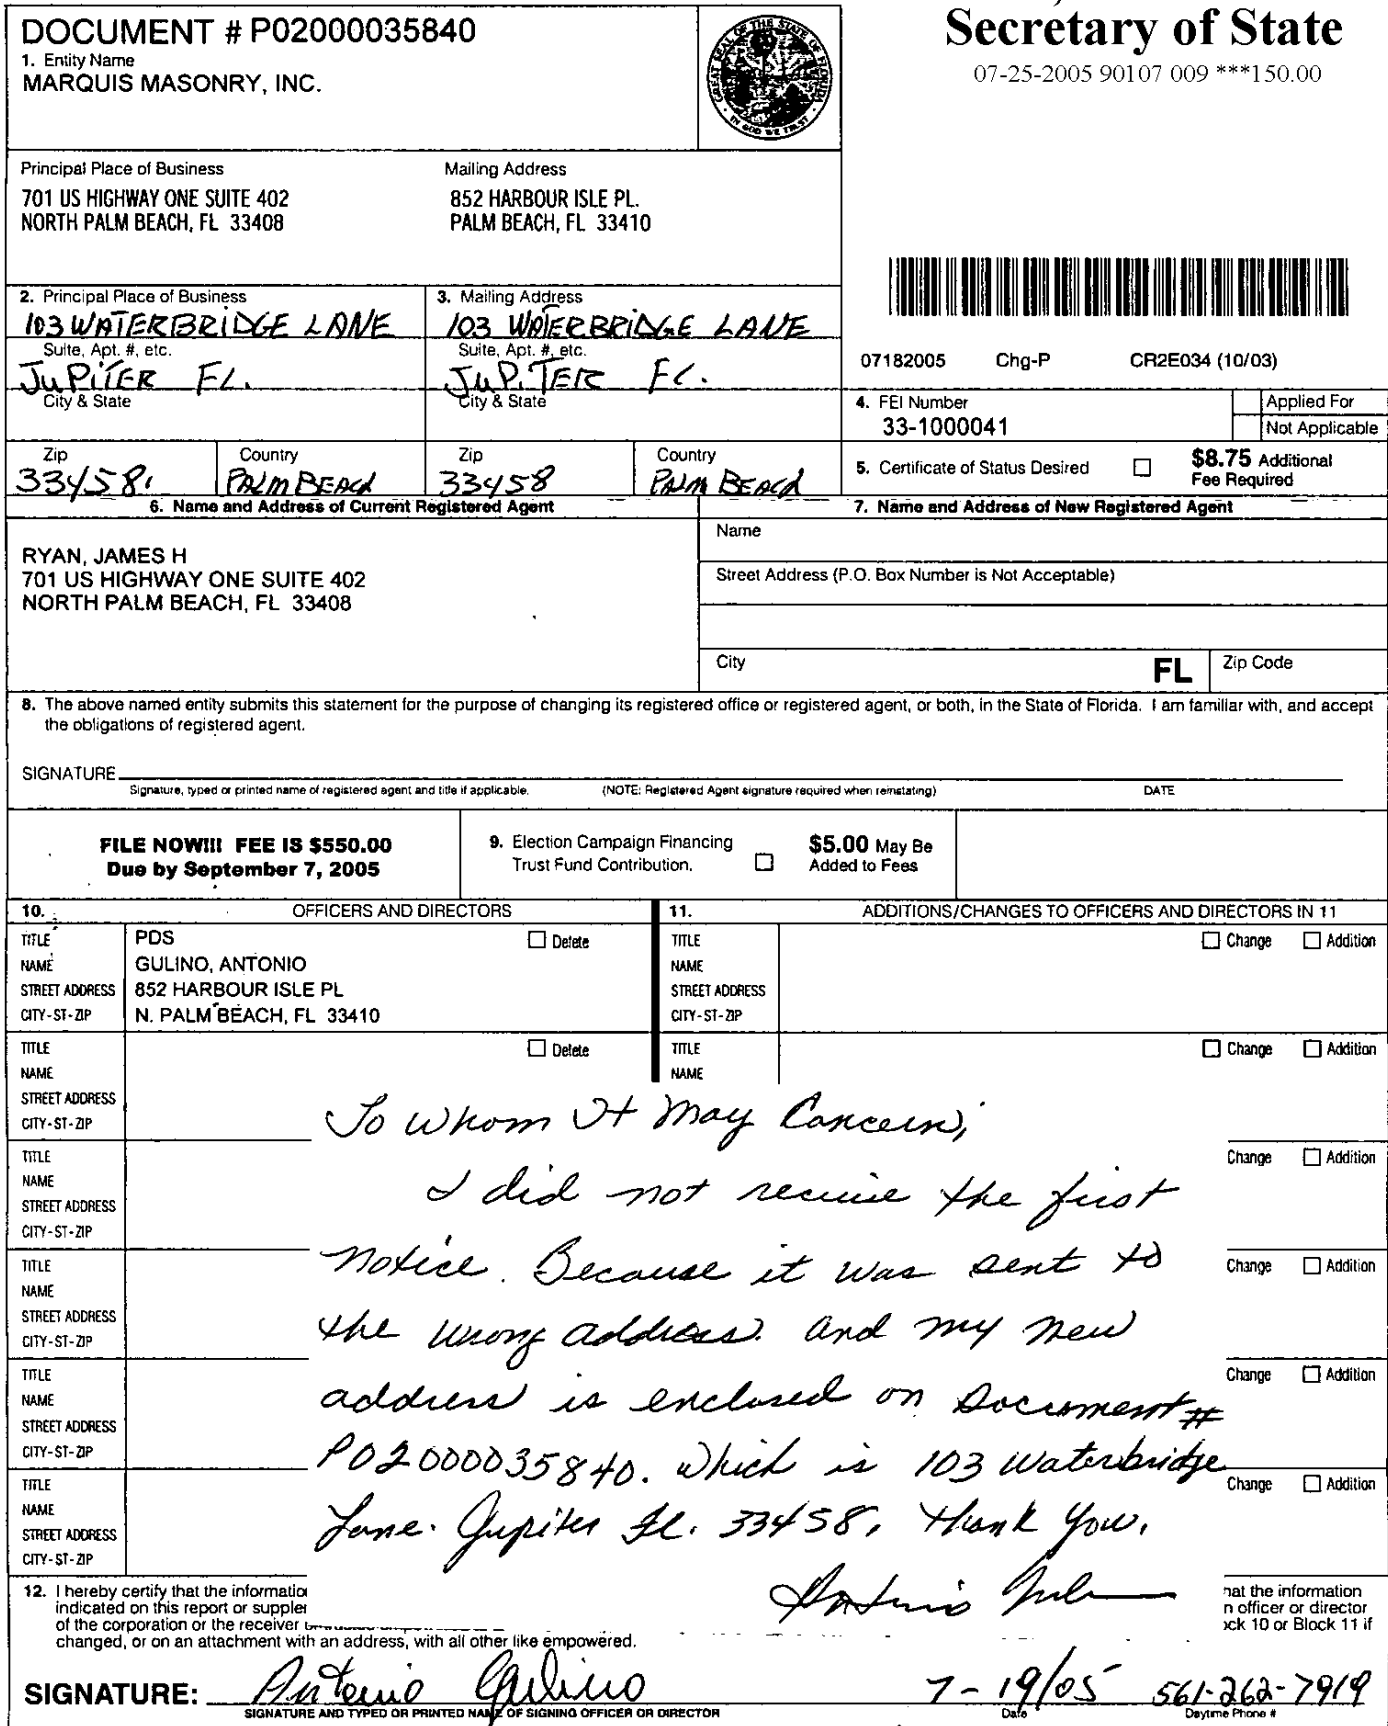 Secretary of State
07-25-2005 90107 009 ***150.00
DOCUMENT # P02000035840
1. Entity Name
MARQUIS MASONRY, INC.
GREAT SEAL OF THE STATE OF FLORIDA
IN GOD WE TRUST
Principal Place of Business
701 US HIGHWAY ONE SUITE 402
NORTH PALM BEACH, FL 33408
Mailing Address
852 HARBOUR ISLE PL.
PALM BEACH, FL 33410
2. Principal Place of Business
103 WATERBRIDGE LANE
Suite, Apt. #, etc.
JUPITER FL.
City & State
Zip
33458.
Country
PALM BEACH
3. Mailing Address
103 WATERBRIDGE LANE
Suite, Apt. #, etc.
JUPITER FL.
City & State
Zip
33458
Country
PALM BEACH
07182005 Chg-P CR2E034 (10/03)
4. FEI Number
33-1000041
Applied For
Not Applicable
5. Certificate of Status Desired
$8.75 Additional
Fee Required
6. Name and Address of Current Registered Agent
RYAN, JAMES H
701 US HIGHWAY ONE SUITE 402
NORTH PALM BEACH, FL 33408
7. Name and Address of New Registered Agent
Name
Street Address (P.O. Box Number is Not Acceptable)
City FL Zip Code
8. The above named entity submits this statement for the purpose of changing its registered office or registered agent, or both, in the State of Florida. I am familiar with, and accept
the obligations of registered agent.
SIGNATURE
Signature, typed or printed name of registered agent and title if applicable. (NOTE: Registered Agent signature required when reinstating) DATE
FILE NOW!!! FEE IS $550.00
Due by September 7, 2005
9. Election Campaign Financing
Trust Fund Contribution.
$5.00 May Be
Added to Fees
10. OFFICERS AND DIRECTORS
11. ADDITIONS/CHANGES TO OFFICERS AND DIRECTORS IN 11
TITLE PDS Delete
NAME GULINO, ANTONIO
STREET ADDRESS 852 HARBOUR ISLE PL
CITY-ST-ZIP N. PALM BEACH, FL 33410
TITLE Change Addition
NAME
STREET ADDRESS
CITY-ST-ZIP
TITLE Delete
NAME
STREET ADDRESS
CITY-ST-ZIP
TITLE Change Addition
NAME
TITLE
NAME
STREET ADDRESS
CITY-ST-ZIP
Change Addition
TITLE
NAME
STREET ADDRESS
CITY-ST-ZIP
Change Addition
TITLE
NAME
STREET ADDRESS
CITY-ST-ZIP
Change Addition
TITLE
NAME
STREET ADDRESS
CITY-ST-ZIP
Change Addition
To Whom It May Concern;
I did not receive the first
notice. Because it was sent to
the wrong address. and my new
address is enclosed on Document #
P02000035840. which is 103 Waterbridge
Lane. Jupiter Fl. 33458. Thank You.
Antonio Gulino
12. I hereby certify that the informatio
indicated on this report or suppler
of the corporation or the receiver
changed, or on an attachment with an address, with all other like empowered.
hat the information
n officer or director
ock 10 or Block 11 if
SIGNATURE: Antonio Gulino 7-19/05 561-262-7919
SIGNATURE AND TYPED OR PRINTED NAME OF SIGNING OFFICER OR DIRECTOR Date Daytime Phone #